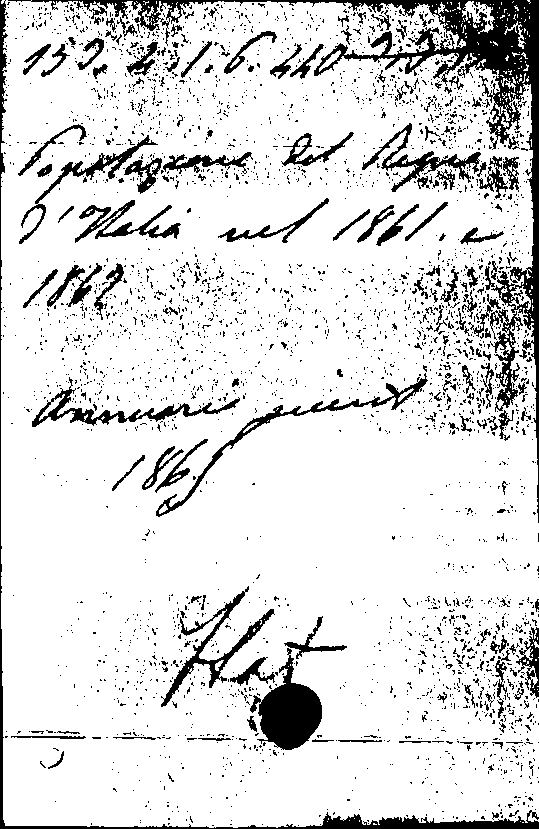 159. 4. 1. 6. 440
Popolazione del Regno
d'Italia nel 1861. e
1862
Annuario
1865
Stat